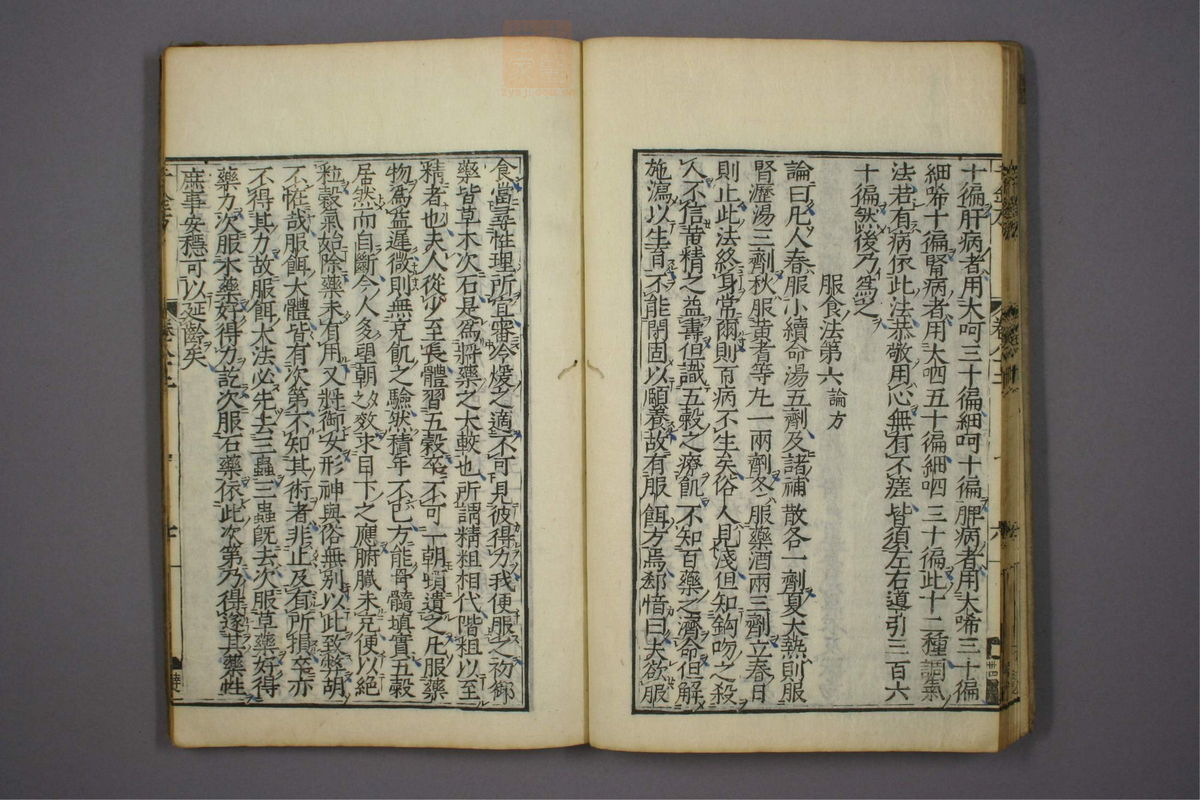 十徧肝病者用大呵三十徧細呵十徧脾病者用大唏三十徧
細唏十徧腎病者用大呬五十徧細呬三十徧此十二種調氣
法若有病依此法恭敬用心無有不瘥皆須左右導引三百六
十徧然後乃爲之
服食法第六論方
論曰凡人春服小續命湯五劑及諸補散各一劑夏大熱則服
腎瀝湯三劑秋服黃耆等丸一兩劑冬服藥酒兩三劑立春日
則止此法終身常爾則百病不生矣俗人見淺但知鈎吻之殺
人不信黃精之益壽但識五穀之療飢不知百藥之濟命但解
施瀉以生育不能閉固以頤養故有服餌方焉郄愔曰夫欲服
食當尋性理所宜審冷煖之適不可見彼得力我便服之初御
藥皆草木次石是爲將藥之大較也所謂精粗相代階粗以至
精者也夫人從少至長體習五穀卒不可一朝頓遺之凡服藥
物爲益遲微則無充飢之驗然積年不已方能骨髓填實五穀
居然而自斷今人多望朝之夕效求目下之應腑臟未充便以絕
粒穀氣始除藥未有用又將御女形神與俗無別以此致弊胡
不怪哉服餌大體皆有次第不知其術者非止及有所損卒亦
不得其力故服餌大法必先去三蟲三蟲旣去次服草藥好得
藥力次服木藥好得力訖次服石藥依此次第乃得遂其藥性
庶事安穩可以延齡矣